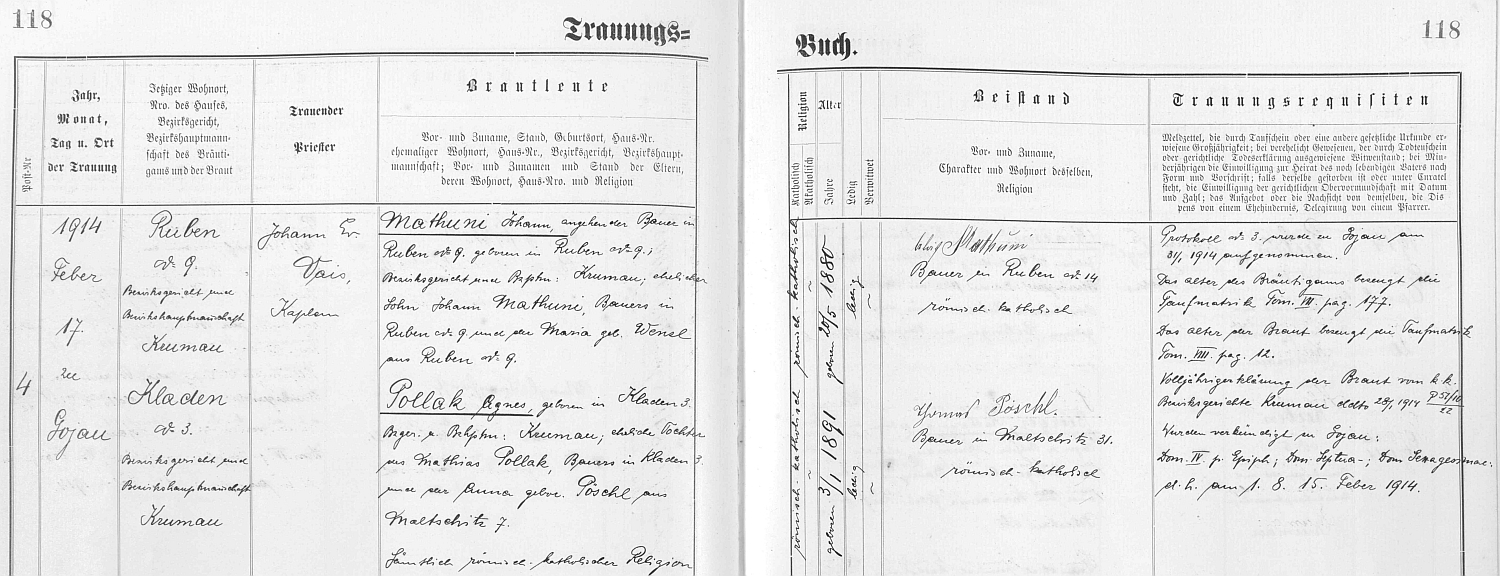 118
Trauungs=
Buch.
118
Post-Nr
Jahr,
Monat,
Tag u. Ort
der Trauung
Jetziger Wohnort,
Nro. des Hauses,
Bezirksgericht,
Bezirkshauptmann-
schaft des Bräuti-
gams und der Braut
Trauender
Priester
Brautleute
Vor- und Zuname, Stand, Geburtsort, Haus-Nr.
ehemaliger Wohnort, Haus-Nr., Bezirksgericht, Bezirkshaupt-
mannschaft; Vor- und Zunamen und Stand der Eltern,
deren Wohnort, Haus-Nro. und Religion
Religion
Katholisch
Akatholisch
Alter
Jahre
Ledig
Verwitwet
Beistand
Vor- und Zuname,
Charakter und Wohnort desselben,
Religion
Trauungsrequisiten
Meldzettel, die durch Taufschein oder eine andere gesetzliche Urkunde er-
wiesene Großjährigkeit; bei verehelicht Gewesenen, der durch Todtenschein
oder gerichtliche Todeserklärung ausgewiesene Witwenstand; bei Min-
derjährigen die Einwilligung zur Heirat des noch lebendigen Vaters nach
Form und Vorschrift; falls derselbe gestorben ist oder unter Curatel
steht, die Einwilligung der gerichtlichen Obervormundschaft mit Datum
und Zahl; das Aufgebot oder die Nachsicht von demselben, die Dis
pens von einem Ehehindernis, Delegirung von einem Pfarrer.
4
1914
Feber
17
zu
Gojau
Ruben
No 9.
Bezirksgericht und
Bezirkshauptmannschaft
Krumau
Kladen
No 3.
Bezirksgericht und
Bezirkshauptmannschaft
Krumau
Johann Ev.
Vais,
Kaplan
Mathuni Johann, angehender Bauer in
Ruben No 9. geboren in Ruben No 9.;
Bezirksgericht und Bzhptm: Krumau, ehelicher
Sohn Johann Mathuni, Bauers in
Ruben No 9 und der Maria geb. Wensl
aus Ruben No 9.
Pollak Agnes, geboren in Kladen 3.
Bzger. u. Bzhptm: Krumau; eheliche Tochter
des Mathias Pollak, Bauers in Kladen 3.
und der Anna gebor. Pöschl aus
Maltschitz 7.
Sämtlich römisch-katholischer Religion
römisch-katholisch
geboren 20/5 1880
ledig
römisch-katholisch
geboren 3/1 1891
ledig
Mathuni
Bauer in Ruben No 14
römisch-katholisch
Thomas Pöschl.
Bauer in Maltschitz 31.
römisch-katholisch
Protokoll No 3. wurde in Gojau am
31/1 1914 aufgenommen.
Das Alter des Bräutigams bezeugt die
Taufmatrik Tom. VII. pag. 177.
Das Alter der Braut bezeugt die Taufmatrik
Tom. VIII. pag. 12.
Volljährigerklärung der Braut vom k.k.
Bezirksgerichte Krumau ddto 28/1 1914
Wurden verkündigt in Gojau:
Dom. IV. p. Epiph; Dom. Septua-; Dom Sexagesimae:
d. h. am 1. 8. 15. Feber 1914.